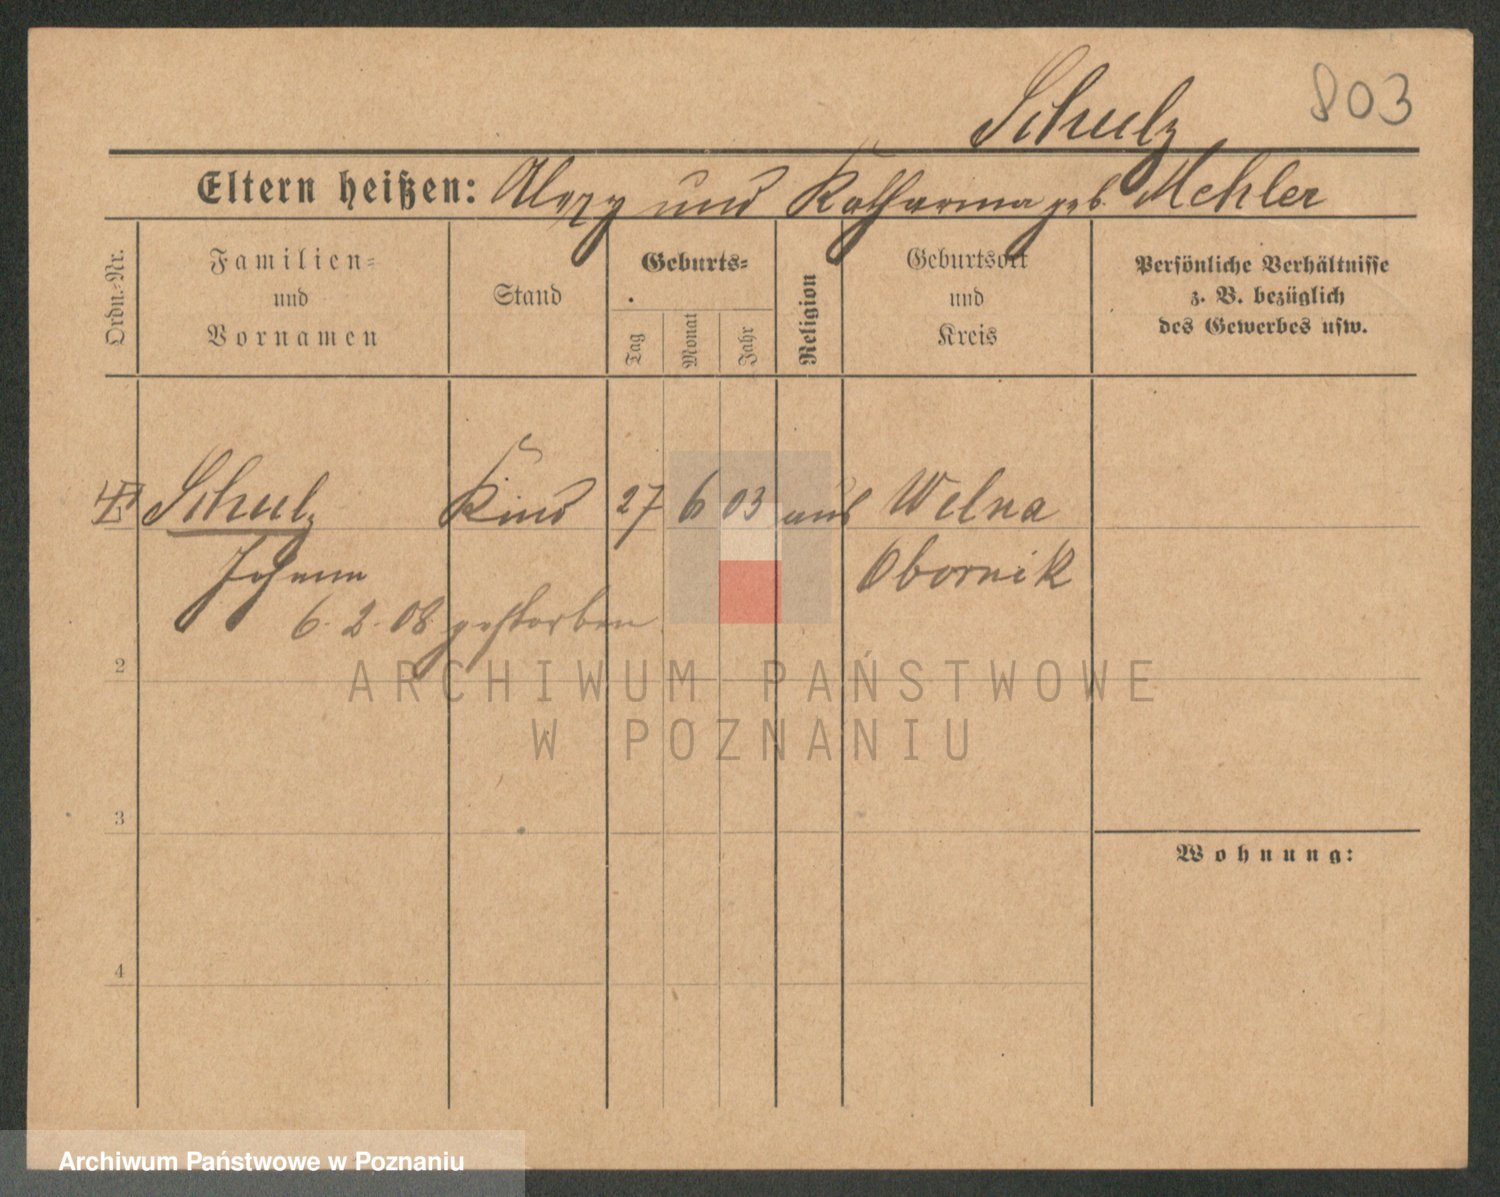 803
Schulz
Eltern heißen: Alozy und Katharina geb. Mehler
Ordn.-Nr.
Familien-
und
Vornamen
Stand
Geburts-
Tag
Monat
Jahr
Religion
Geburtsort
und
Kreis
Persönliche Verhältnisse
z. B. bezüglich
des Gewerbes usw.
Schulz Kind 27 6 03 Welna
Johann Obornik
6. 2. 08 gestorben
2
ARCHIWUM PAŃSTWOWE
W POZNANIU
3
Wohnung:
4
Archiwum Państwowe w Poznaniu